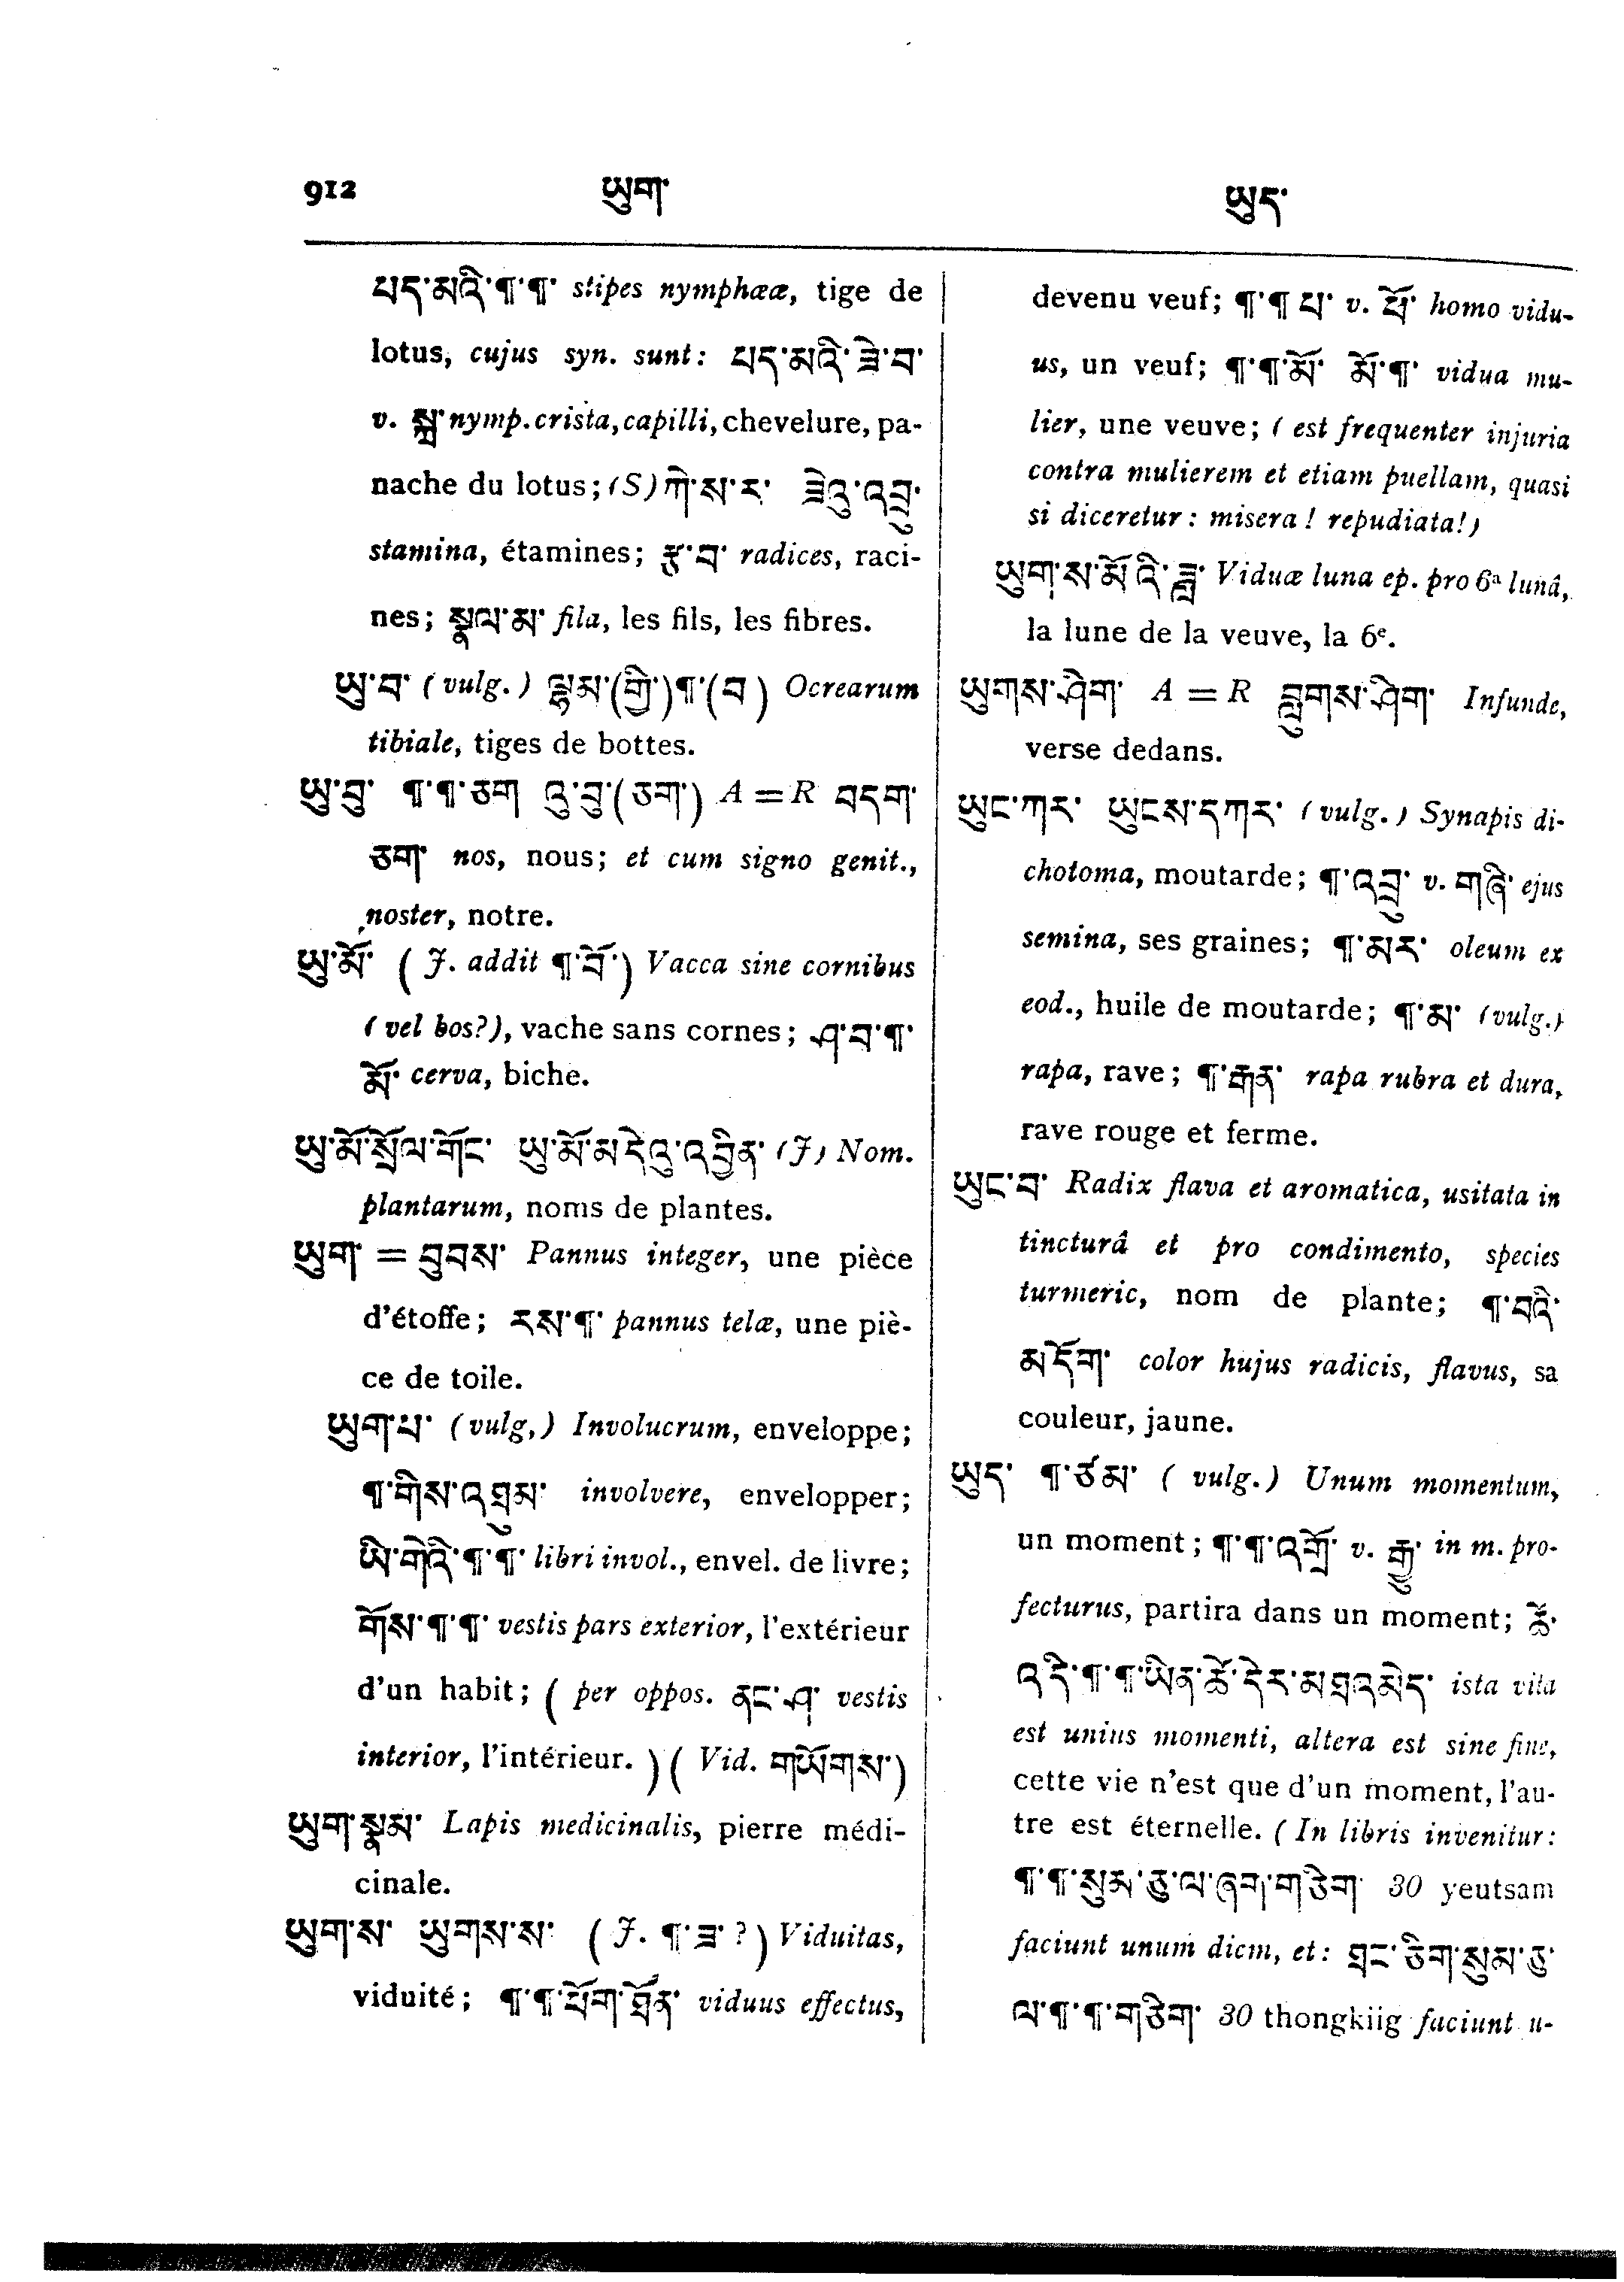 912 ཡུག་ ཡུད་
པད་མའི་¶་¶་ stipes nymphææ, tige de
lotus, cujus syn. sunt: པད་མའི་ཟེ་བ་
v. སྐྲ་ nymp. crista, capilli, chevelure, pa-
nache du lotus; (S) ཀེ་ས་ར་ ཟེའུ་འབྲུ་
stamina, étamines; རྩ་བ་ radices, raci-
nes; སྣལ་མ་ fila, les fils, les fibres.
ཡུ་བ་ (vulg.) ལྷམ་(གྱི་)¶་(བ) Ocrearum
tibiale, tiges de bottes.
ཡུ་བུ་ ¶་¶་ཅག འུ་བུ་(ཅག་) A = R བདག་
ཅག་ nos, nous; et cum signo genit.,
noster, notre.
ཡུ་མོ་ (J. addit ¶་བོ་) Vacca sine cornibus
(vel bos?), vache sans cornes; ཤ་བ་¶་
མོ་ cerva, biche.
ཡུ་མོ་སྲོལ་གོང་ ཡུ་མོ་མདེའུ་འབྱིན་ (J) Nom.
plantarum, noms de plantes.
ཡུག་ = བུབས་ Pannus integer, une pièce
d'étoffe; རས་¶་ pannus telæ, une piè-
ce de toile.
ཡུག་པ་ (vulg,) Involucrum, enveloppe;
¶་གིས་འཐུམ་ involvere, envelopper;
ཡི་གེའི་¶་¶་ libri invol., envel. de livre;
གོས་¶་¶་ vestis pars exterior, l'extérieur
d'un habit; (per oppos. ནང་ཤ་ vestis
interior, l'intérieur.) (Vid. གཡོགས་)
ཡུག་སྣམ་ Lapis medicinalis, pierre médi-
cinale.
ཡུག་ས་ ཡུགས་ས་ (J. ¶་ཟ་?) Viduitas,
viduité; ¶་¶་ཕོག་ཐོན་ viduus effectus,
devenu veuf; ¶་¶་པ་ v. ཕོ་ homo vidu-
us, un veuf; ¶་¶་མོ་ མོ་¶་ vidua mu-
lier, une veuve; (est frequenter injuria
contra mulierem et etiam puellam, quasi
si diceretur: misera! repudiata!)
ཡུག་ས་མོའི་ཟླ་ Viduæ luna ep. pro 6ª lunâ,
la lune de la veuve, la 6e.
ཡུགས་ཤིག་ A = R བླུགས་ཤིག་ Infunde,
verse dedans.
ཡུང་ཀར་ ཡུངས་དཀར་ (vulg.) Synapis di-
chotoma, moutarde; ¶་འབྲུ་ v. གཞི་ ejus
semina, ses graines; ¶་མར་ oleum ex
eod., huile de moutarde; ¶་མ་ (vulg.)
rapa, rave; ¶་རྒན་ rapa rubra et dura,
rave rouge et ferme.
ཡུང་བ་ Radix flava et aromatica, usitata in
tincturâ et pro condimento, species
turmeric, nom de plante; ¶་བའི་
མདོག་ color hujus radicis, flavus, sa
couleur, jaune.
ཡུད་ ¶་ཙམ་ (vulg.) Unum momentum,
un moment; ¶་¶་འགྲོ་ v. རྒྱུ་ in m. pro-
fecturus, partira dans un moment; ཚེ་
འདི་¶་¶་ཡིན་ཚེ་དེར་མཐའམེད་ ista vita
est unius momenti, altera est sine fine,
cette vie n'est que d'un moment, l'au-
tre est éternelle. (In libris invenitur:
¶་¶་སུམ་ཅུ་ལ་ཞག་གཅིག་ 30 yeutsam
faciunt unum diem, et: ཐང་ཅིག་སུམ་ཅུ་
ལ་¶་¶་གཅིག་ 30 thongkiig faciunt u-